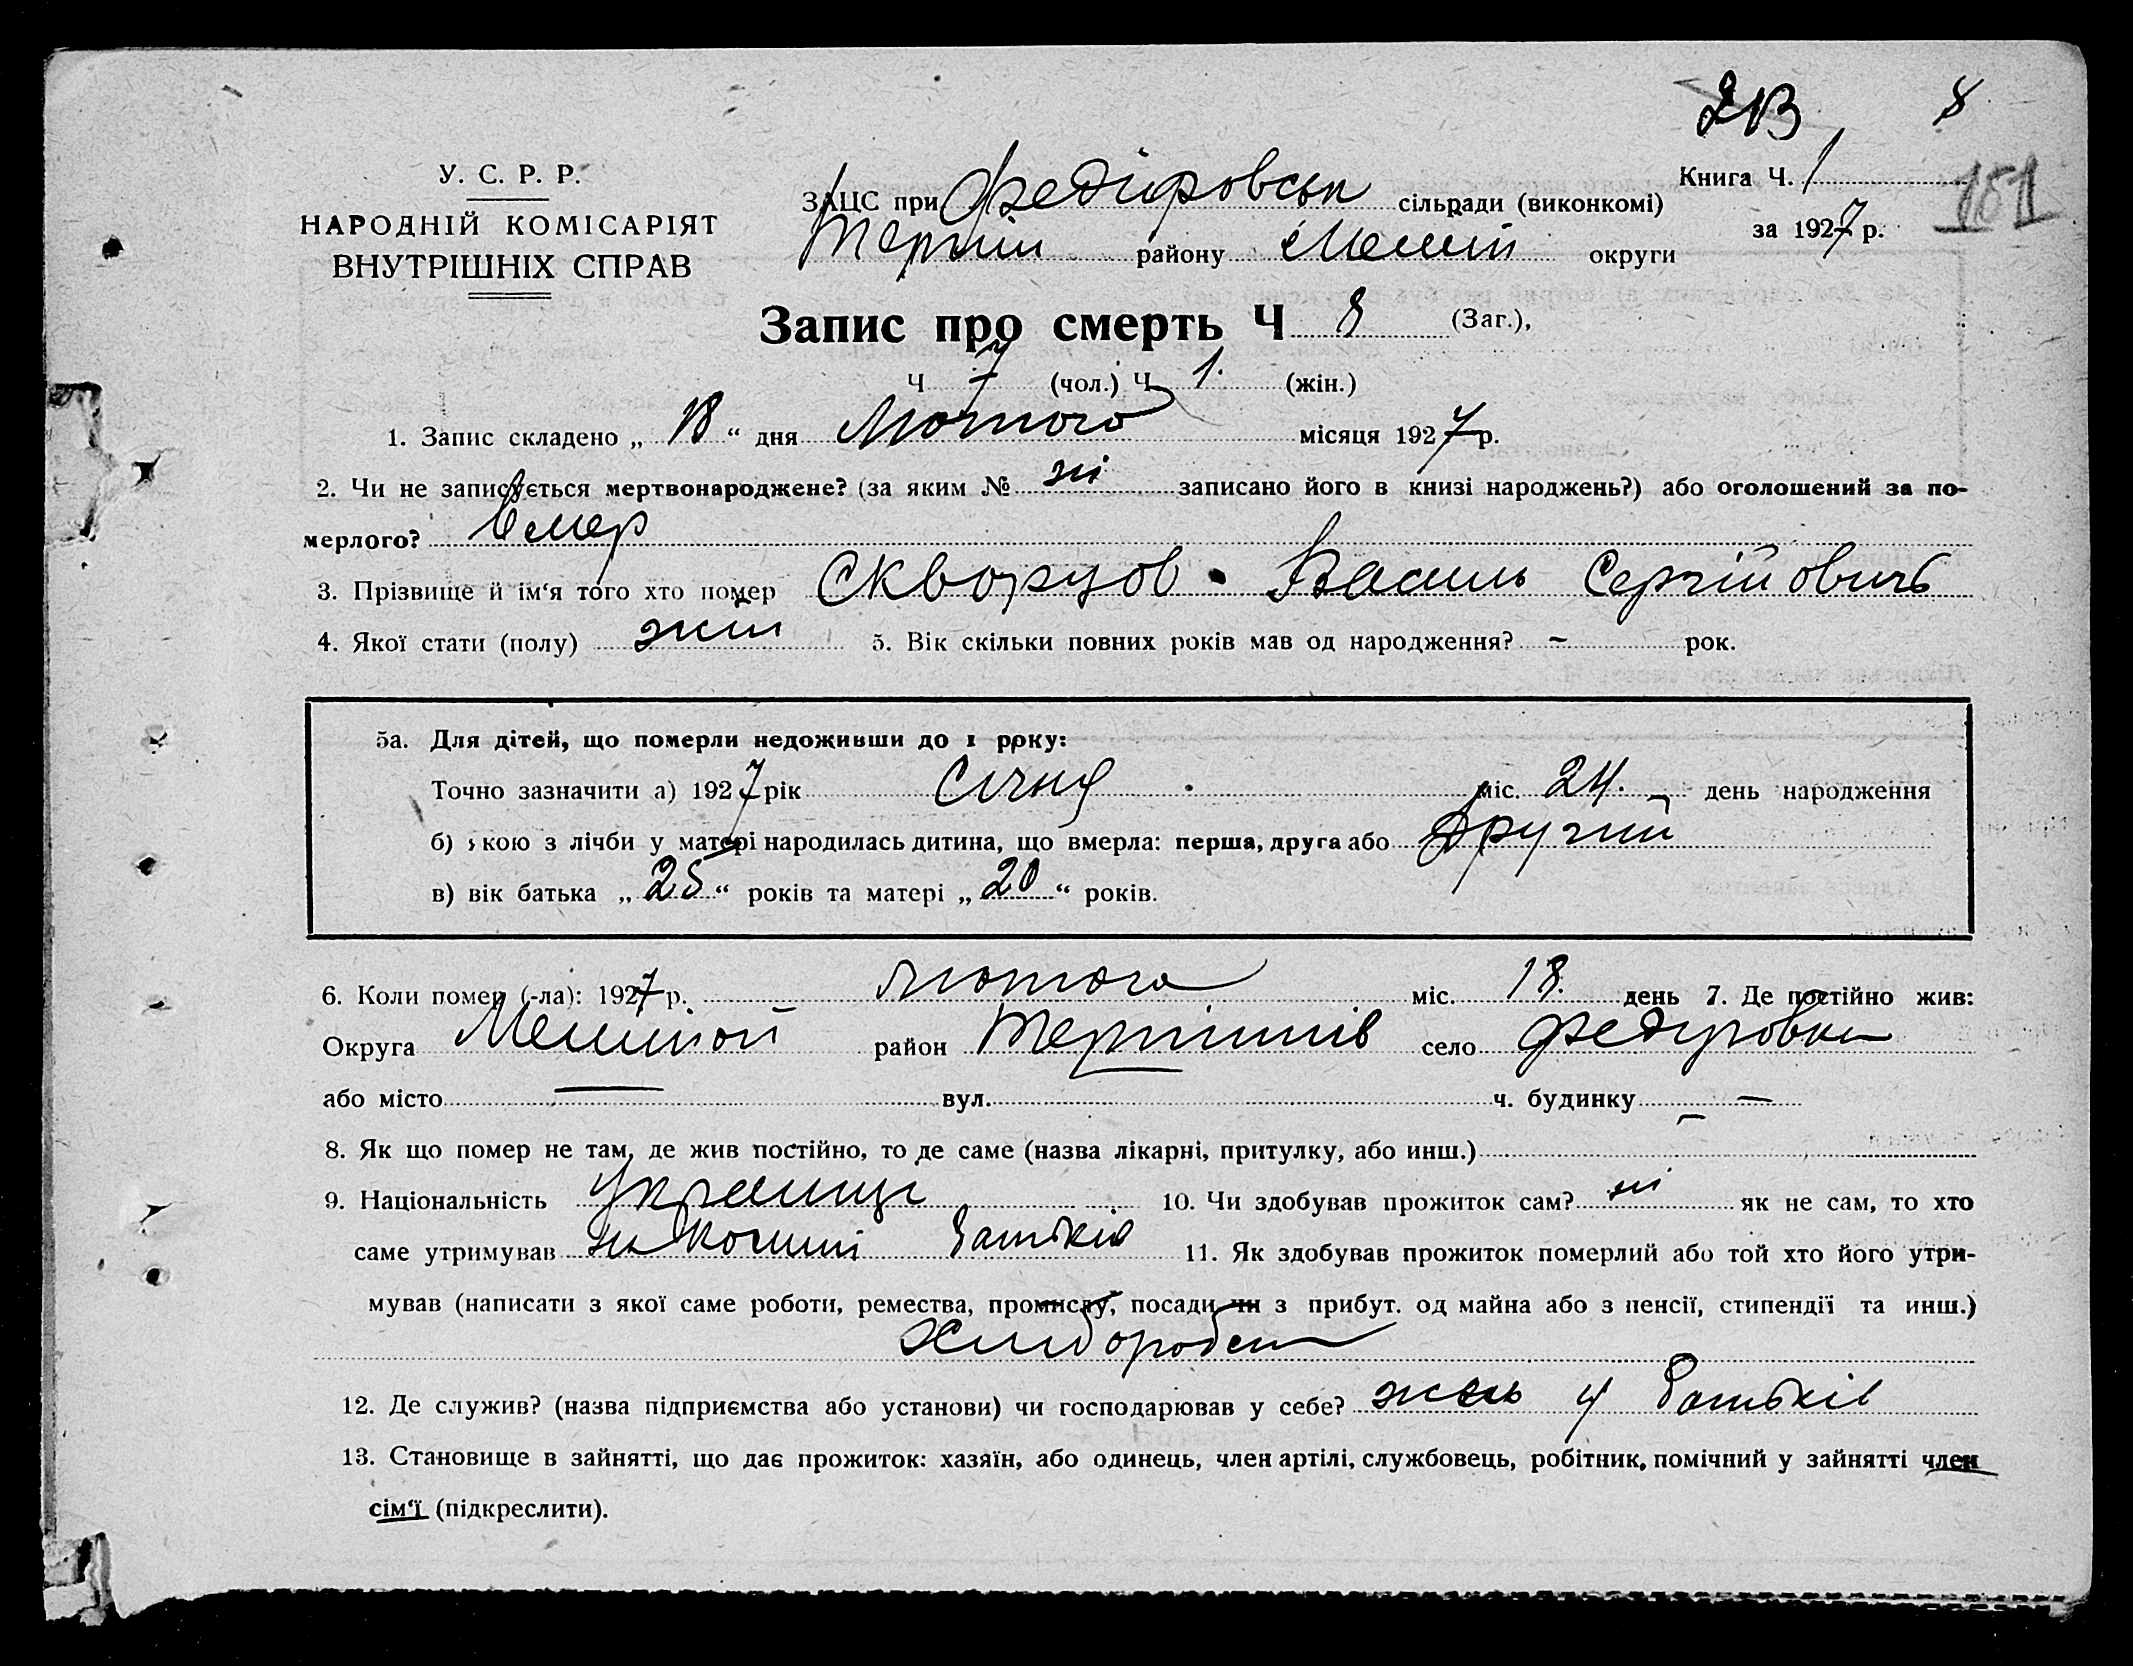 2В 8
У. С. Р. Р.
НАРОДНІЙ КОМІСАРІЯТ
ВНУТРІШНІХ СПРАВ
Книга Ч. 1
151
за 1927 р.
ЗАЦС при Федіровськ сільради (виконкомі)
району округи
Запис про смерть Ч 8 (Заг.),
Ч 7 (чол.) Ч 1. (жін.)
1. Запис складено „ 18 “ дня Лютого місяця 1927 р.
2. Чи не записується мертвонароджене? (за яким № ні записано його в книзі народжень?) або оголошений за по-
мерлого? Вмер
3. Прізвище й ім‘я того хто помер Скворцов Василь Сергійовичь
4. Якої стати (полу) 5. Вік скільки повних років мав од народження? – рок.
5а. Для дітей, що померли недоживши до 1 року:
Точно зазначити а) 1927 рік Січня міс. 24. день народження
б) якою з лічби у матері народилась дитина, що вмерла: перша, друга або Другий
в) вік батька „ 25 “ років та матері „ 20 “ років.
6. Коли помер (-ла): 1927 р. лютого міс. 18. день 7. Де постійно жив:
Округа район село Федіровка
або місто — вул. ч. будинку —
8. Як що помер не там, де жив постійно, то де саме (назва лікарні, притулку, або инш.) –
9. Національність українці 10. Чи здобував прожиток сам? ні як не сам, то хто
саме утримував на кошті батьків 11. Як здобував прожиток померлий або той хто його утри-
мував (написати з якої саме роботи, ремества, промислу, посади чи з прибут. од майна або з пенсії, стипендії та инш.)
12. Де служив? (назва підприємства або установи) чи господарював у себе? у батьків
13. Становище в зайнятті, що дає прожиток: хазяїн, або одинець, член артілі, службовець, робітник, помічний у зайнятті член
сім‘ї (підкреслити).